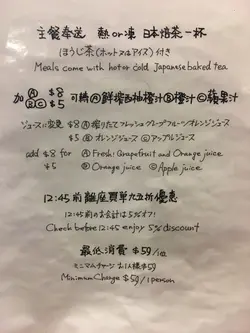 主餐奉送 熱or凍 日本焙茶一杯
ほうじ茶(ホットヌはアイス)付き
Meals come with hot or cold Japanese baked tea
加 Ⓐ $8 可轉Ⓐ鮮搾西柚橙汁Ⓑ橙汁Ⓒ蘋果汁
ⒷⒸ $5
ジュースに変更 $8 Ⓐ搾りたてフレッシュグレープフルーツオレンジジュース
$5 Ⓑオレンジジュース Ⓒアップルジュース
add $8 for Ⓐ Fresh! Grapefruit and Orange juice
$5 Ⓑ Orange juice Ⓒ Apple juice
12:45 前離座買單九五折優惠
12:45 前のお会計は5%オフ!
Check before 12:45 enjoy 5% discount
最低消費 $59/1位
ミニマムチャージ お1人様$59
Minimum Charge $59/1person